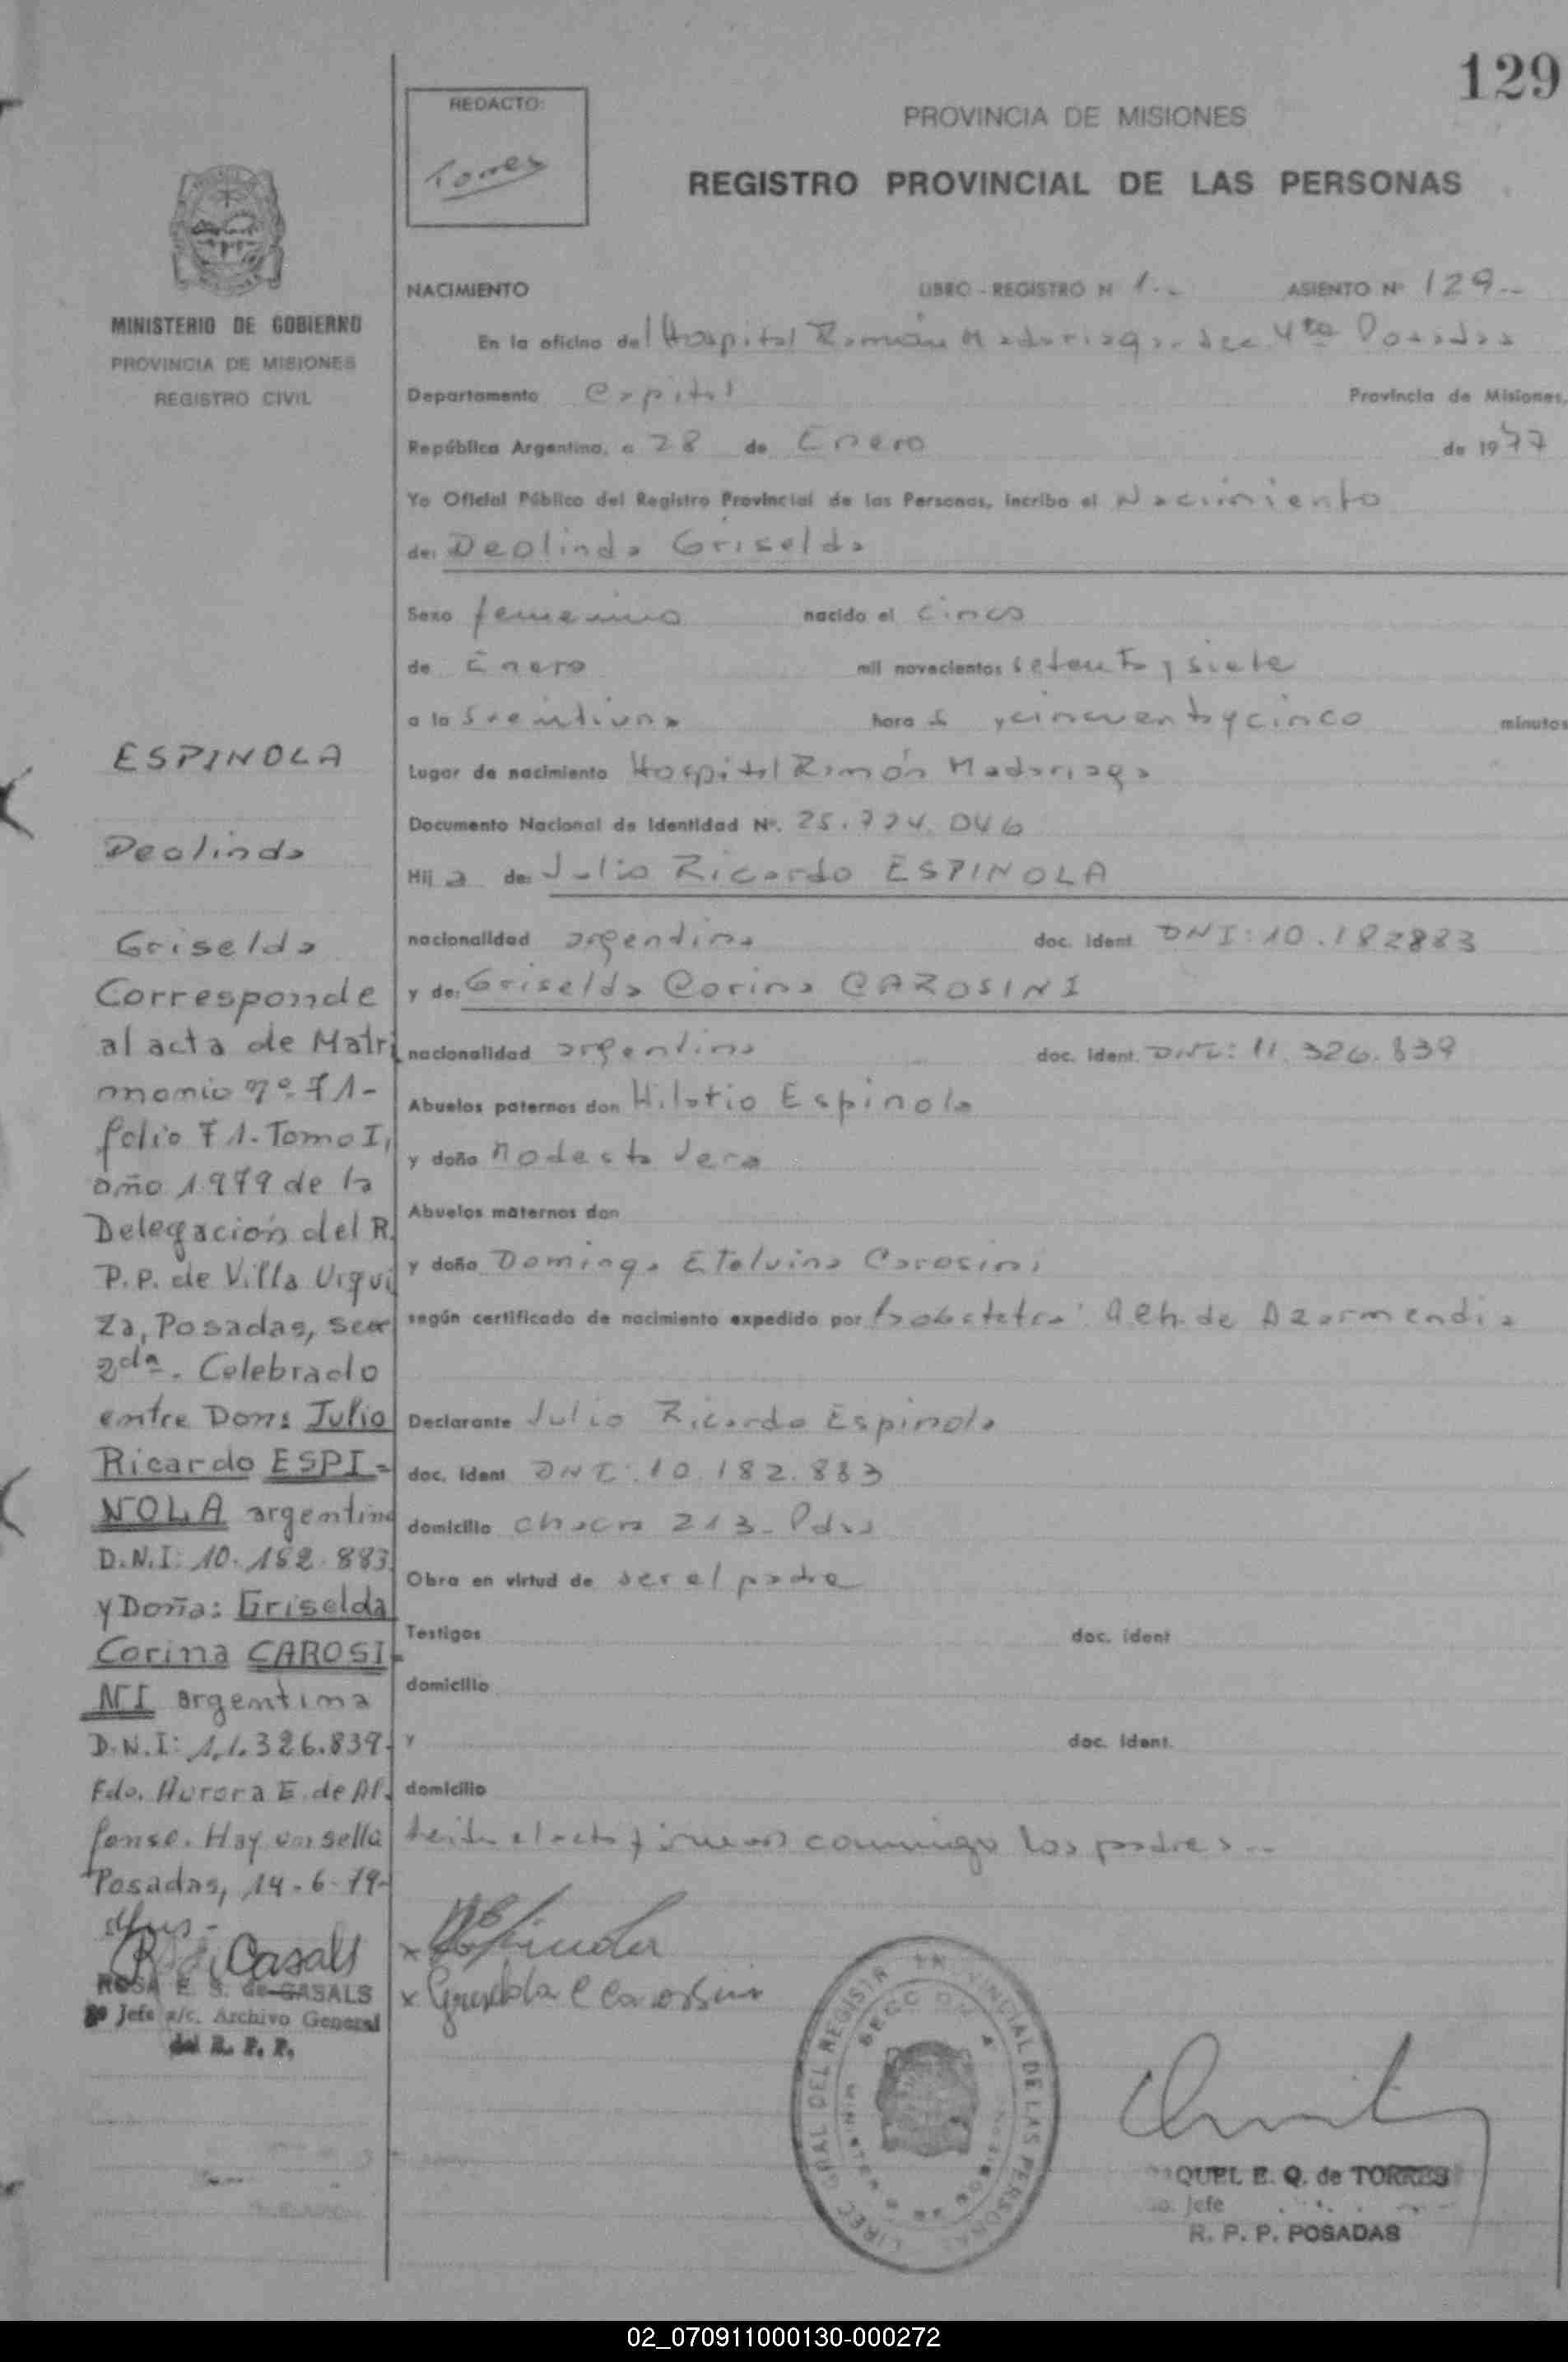 129
REDACTO:
Torres
PROVINCIA DE MISIONES
REGISTRO PROVINCIAL DE LAS PERSONAS
MINISTERIO DE GOBIERNO
PROVINCIA DE MISIONES
REGISTRO CIVIL
NACIMIENTO LIBRO - REGISTRO N 1.- ASIENTO Nº 129.-
En la oficina del Hospital Ramón Madariaga - Sec. 4ta Posadas
Departamento Capital Provincia de Misiones,
República Argentina, a 28 de Enero de 1977
Yo Oficial Público del Registro Provincial de las Personas, incribo el Nacimiento
de: Deolinda Griselda
Sexo femenino nacido el cinco
de Enero mil novecientos setenta y siete
a las veintiuna horas y cincuenta y cinco minutos
Lugar de nacimiento Hospital Ramón Madariaga
Documento Nacional de Identidad Nº. 25.724.046
Hija de: Julio Ricardo ESPINOLA
nacionalidad argentina doc. ident. DNI: 10.182883
y de: Griselda Corina CAROSINI
nacionalidad argentina doc. ident. DNI: 11.326.839
Abuelos paternos don Hilario Espinola
y doña Modesta Vera
Abuelos maternos don
y doña Dominga Etelvina Carosini
según certificado de nacimiento expedido por la obstetra: de Azarmendia
Declarante Julio Ricardo Espinola
doc. ident DNI: 10.182.883
domicilio chacra 213 - Pdas
Obra en virtud de ser el padre
Testigos doc. ident
domicilio
y doc. ident.
domicilio
Leida el acta firman conmigo los padres.-
x Espinola
x Griselda C Carossini
ESPINOLA
Deolinda
Griselda
Corresponde
al acta de Matri
monio nº 71-
folio 71-Tomo I,
año 1979 de la
Delegación del R.
P.P. de Villa Urqui
za, Posadas, sec
2da. Celebrado
entre Don: Julio
Ricardo ESPI-
NOLA argentino
D.N.I: 10.182.883
y Doña: Griselda
Corina CAROSI-
NI argentina
D.N.I: 11.326.839.
Fdo. Aurora E. de Al-
fonso. Hay un sello
Posadas, 14-6-79-
Casals
ROSA E. S. de CASALS
Jefe a/c. Archivo General
del R. P. P.
DIREC GRAL DEL REGISTR PROVINCIAL DE LAS PERSONAS
SECCION 4
QUEL E. Q. de TORRES
Jefe
R. P. P. POSADAS
02_070911000130-000272